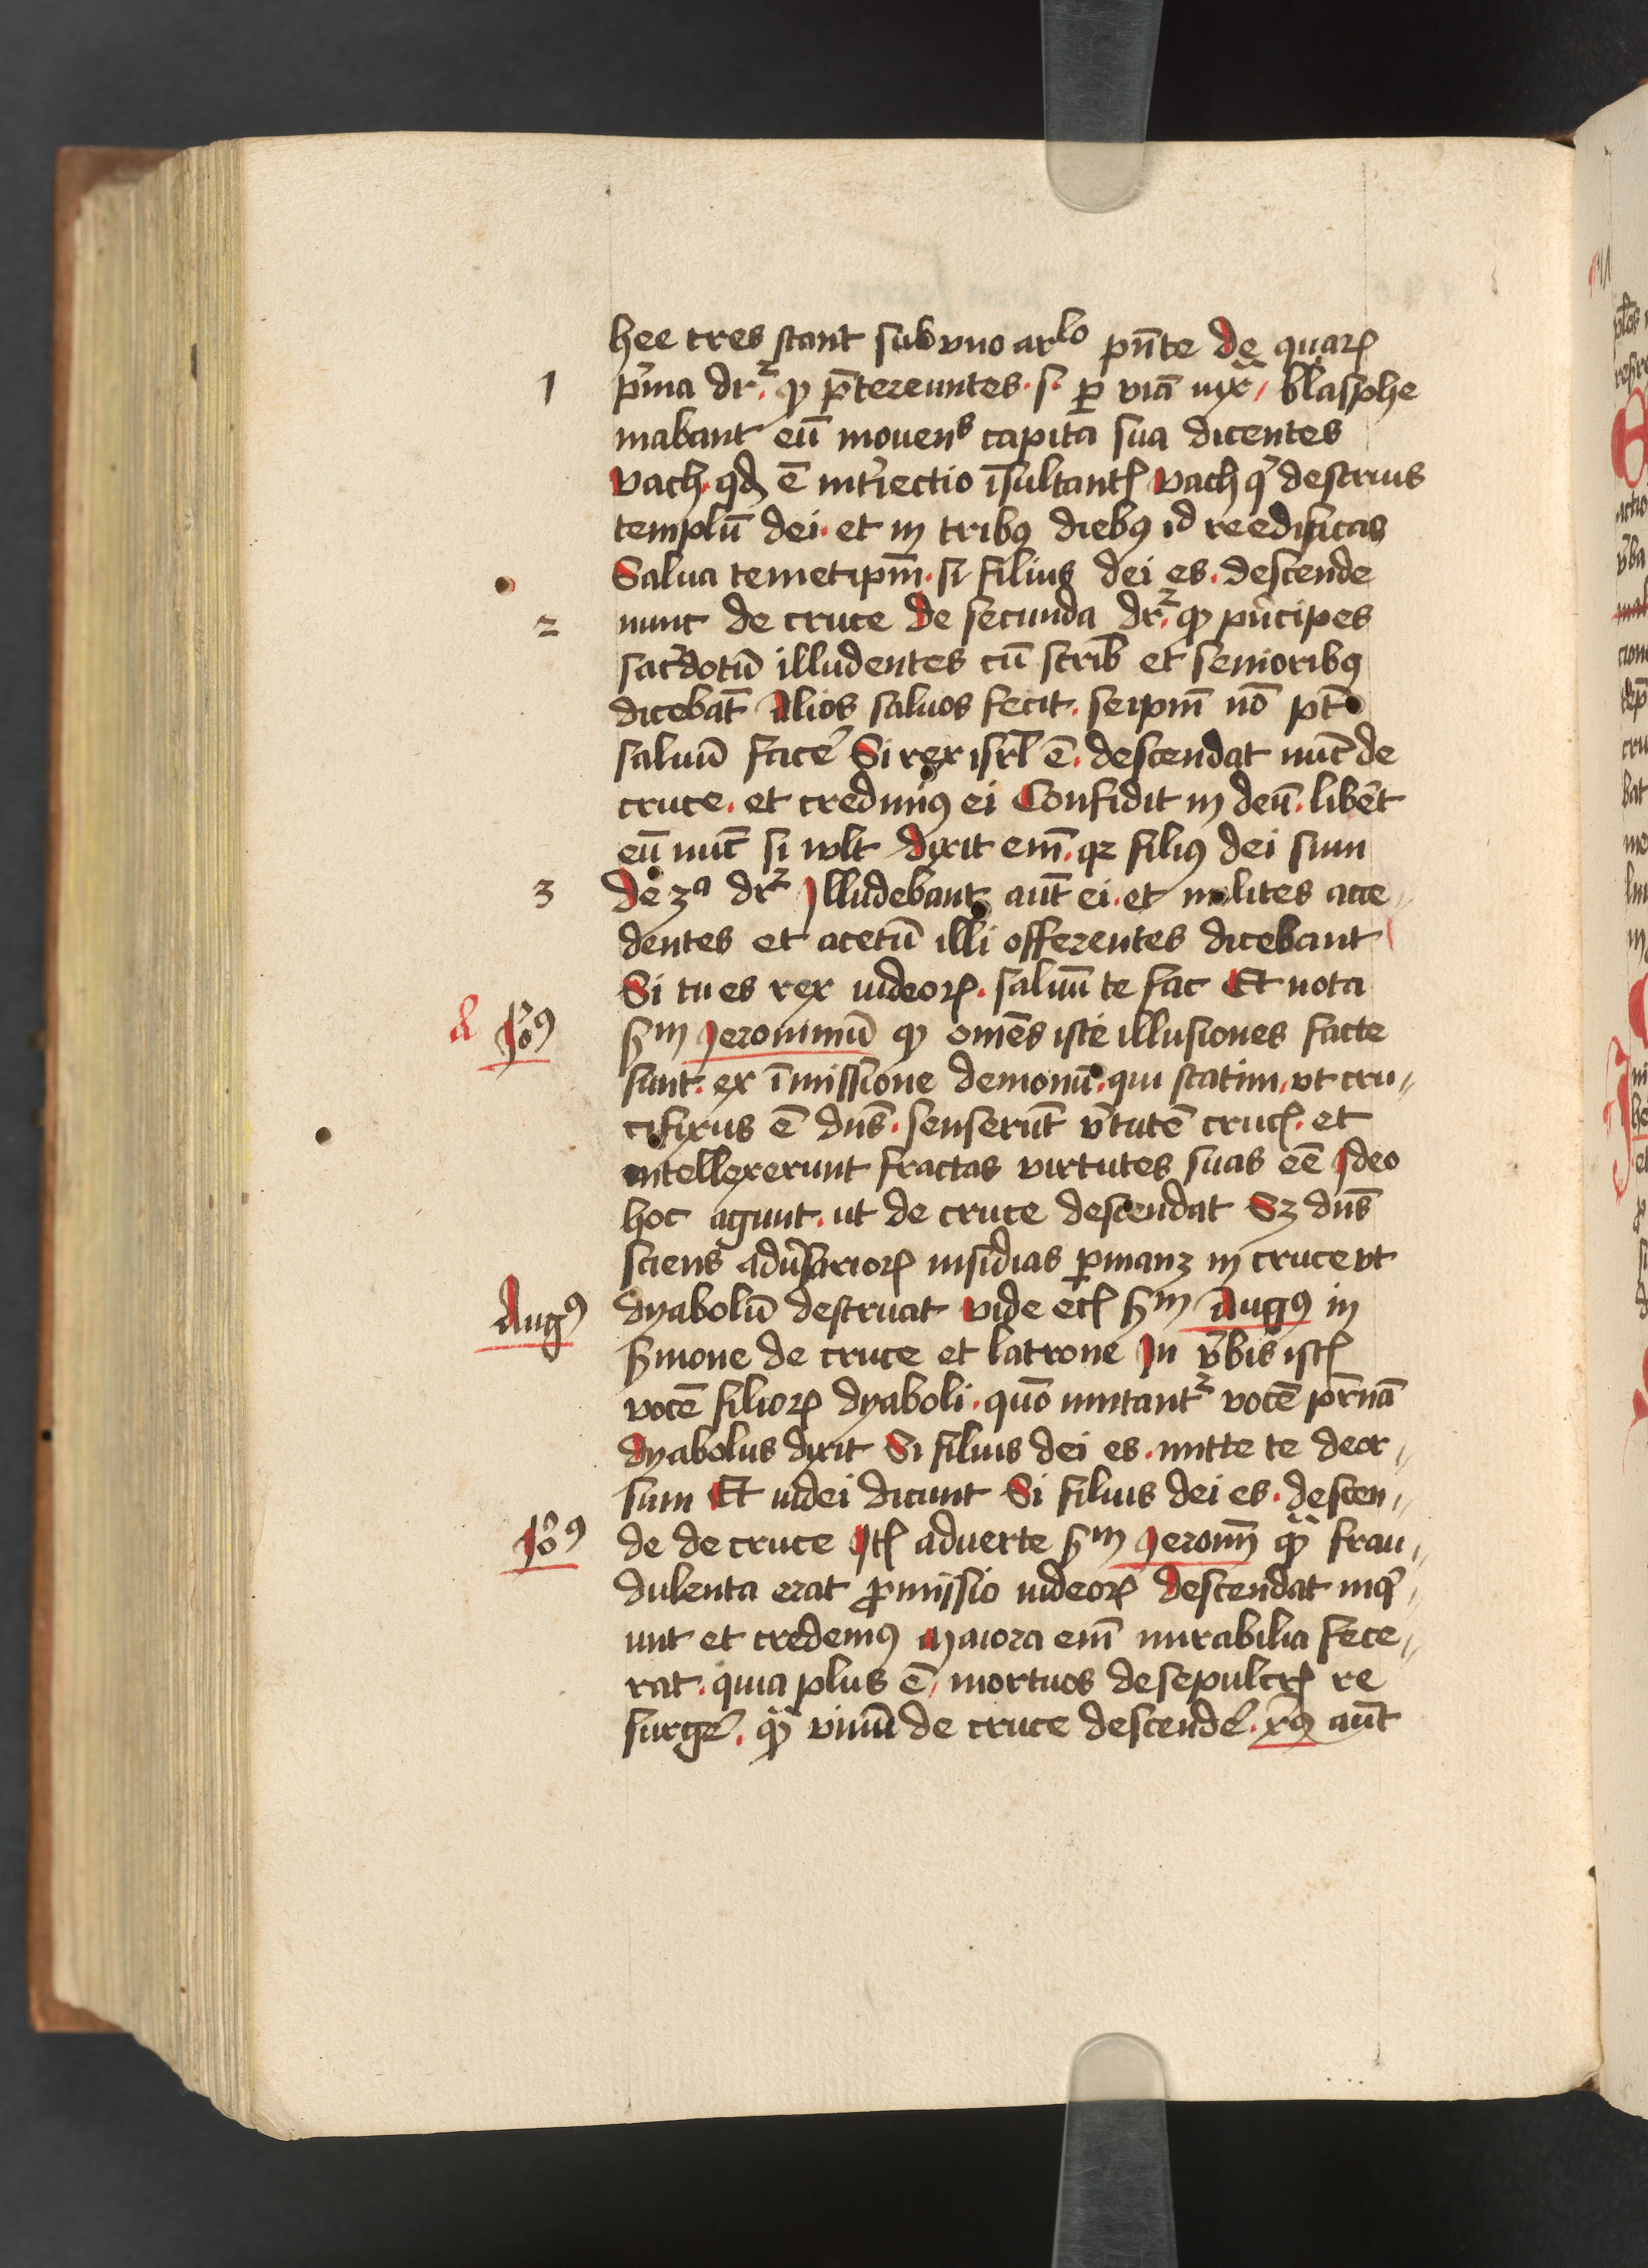 hee tres stant sub vno arlo pn̄te de quarꝝ
1 p͛ma dr̄ ꝙ p̄tereuntes s. ꝑ viā iux̄ blasphe
mabant eū mouens capita sua dicentes
vach qđ ē int͛iectio īsultantꝭ vach q͛ destruis
templū dei et in tribꝰ diebꝰ id reedificas
Salua temetipm̄ si filius dei es descende
2 nunc de cruce de secunda dr̄ ꝙ pn͛cipes
sac͛dotū illudentes cū scrib̄ et senioribꝰ
dicebāt Alios saluos fecit seipm̄ nō pt̄
saluū face͛ Si rex isrl̄ ē descendat nūc de
cruce et credimꝰ ei Confidit in deū libe͛t
eū nūc si wlt dixit em̄ qꝛ filiꝰ dei sum
3 de 3a dr̄ Jlludebant aūt ei et milites acce
dentes et acetū illi offerentes dicebant
Si tu es rex iudeoꝝ saluū te fac Et nota
& Jeoꝰ
scd̄m Jeronimū ꝙ omēs iste illusiones facte
sunt ex īmissione demonū qui statim vt cru
cifixus ē dn̄s senserūt v͛tutē crucꝭ et
intellexerunt fractas virtutes suas eē Jdeo
hoc agunt ut de cruce descendat Sꝫ dn̄s
sciens adu͛sarioꝝ insidias ꝑmanꝫ in cruce vt
Augꝰ
dyabolū destruat vide ecꝭ scd̄m Augꝰ in
s͛mone de cruce et latrone Jn v͛bis istꝭ
vocē filioꝝ dyaboli quō imitant͛ vocē pr̄nā
dyabolus dixit Si filius dei es mitte te deor
sum Et iudei dicunt Si filius dei es descen
Jeoꝰ
de de cruce Jtꝭ aduerte scd̄m Jeronī ꝙ̄ frau
dulenta erat ꝓmissio iudeoꝝ descendat inq͛
unt et credemꝰ Maiora em̄ mirabilia fece
rat quia plus ē mortuos de sepulcrꝭ re
surge͛ ꝙ̄ viuū de cruce descende͛ xp̄ꝰ aūt